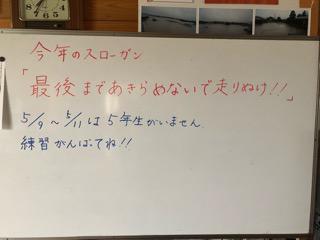 今年のスローガン
「最後まであきらめないで走りぬけ!!」
5/9~5/11は5年生がいません.
練習がんばってね!!